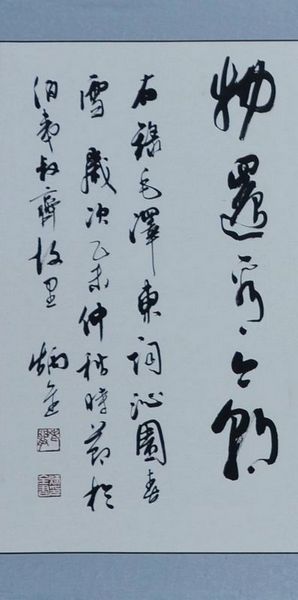 物還看今朝
右錄毛澤東詞沁園春
雪歲次乙未仲秋時節於
伯夷叔齊故里
炳